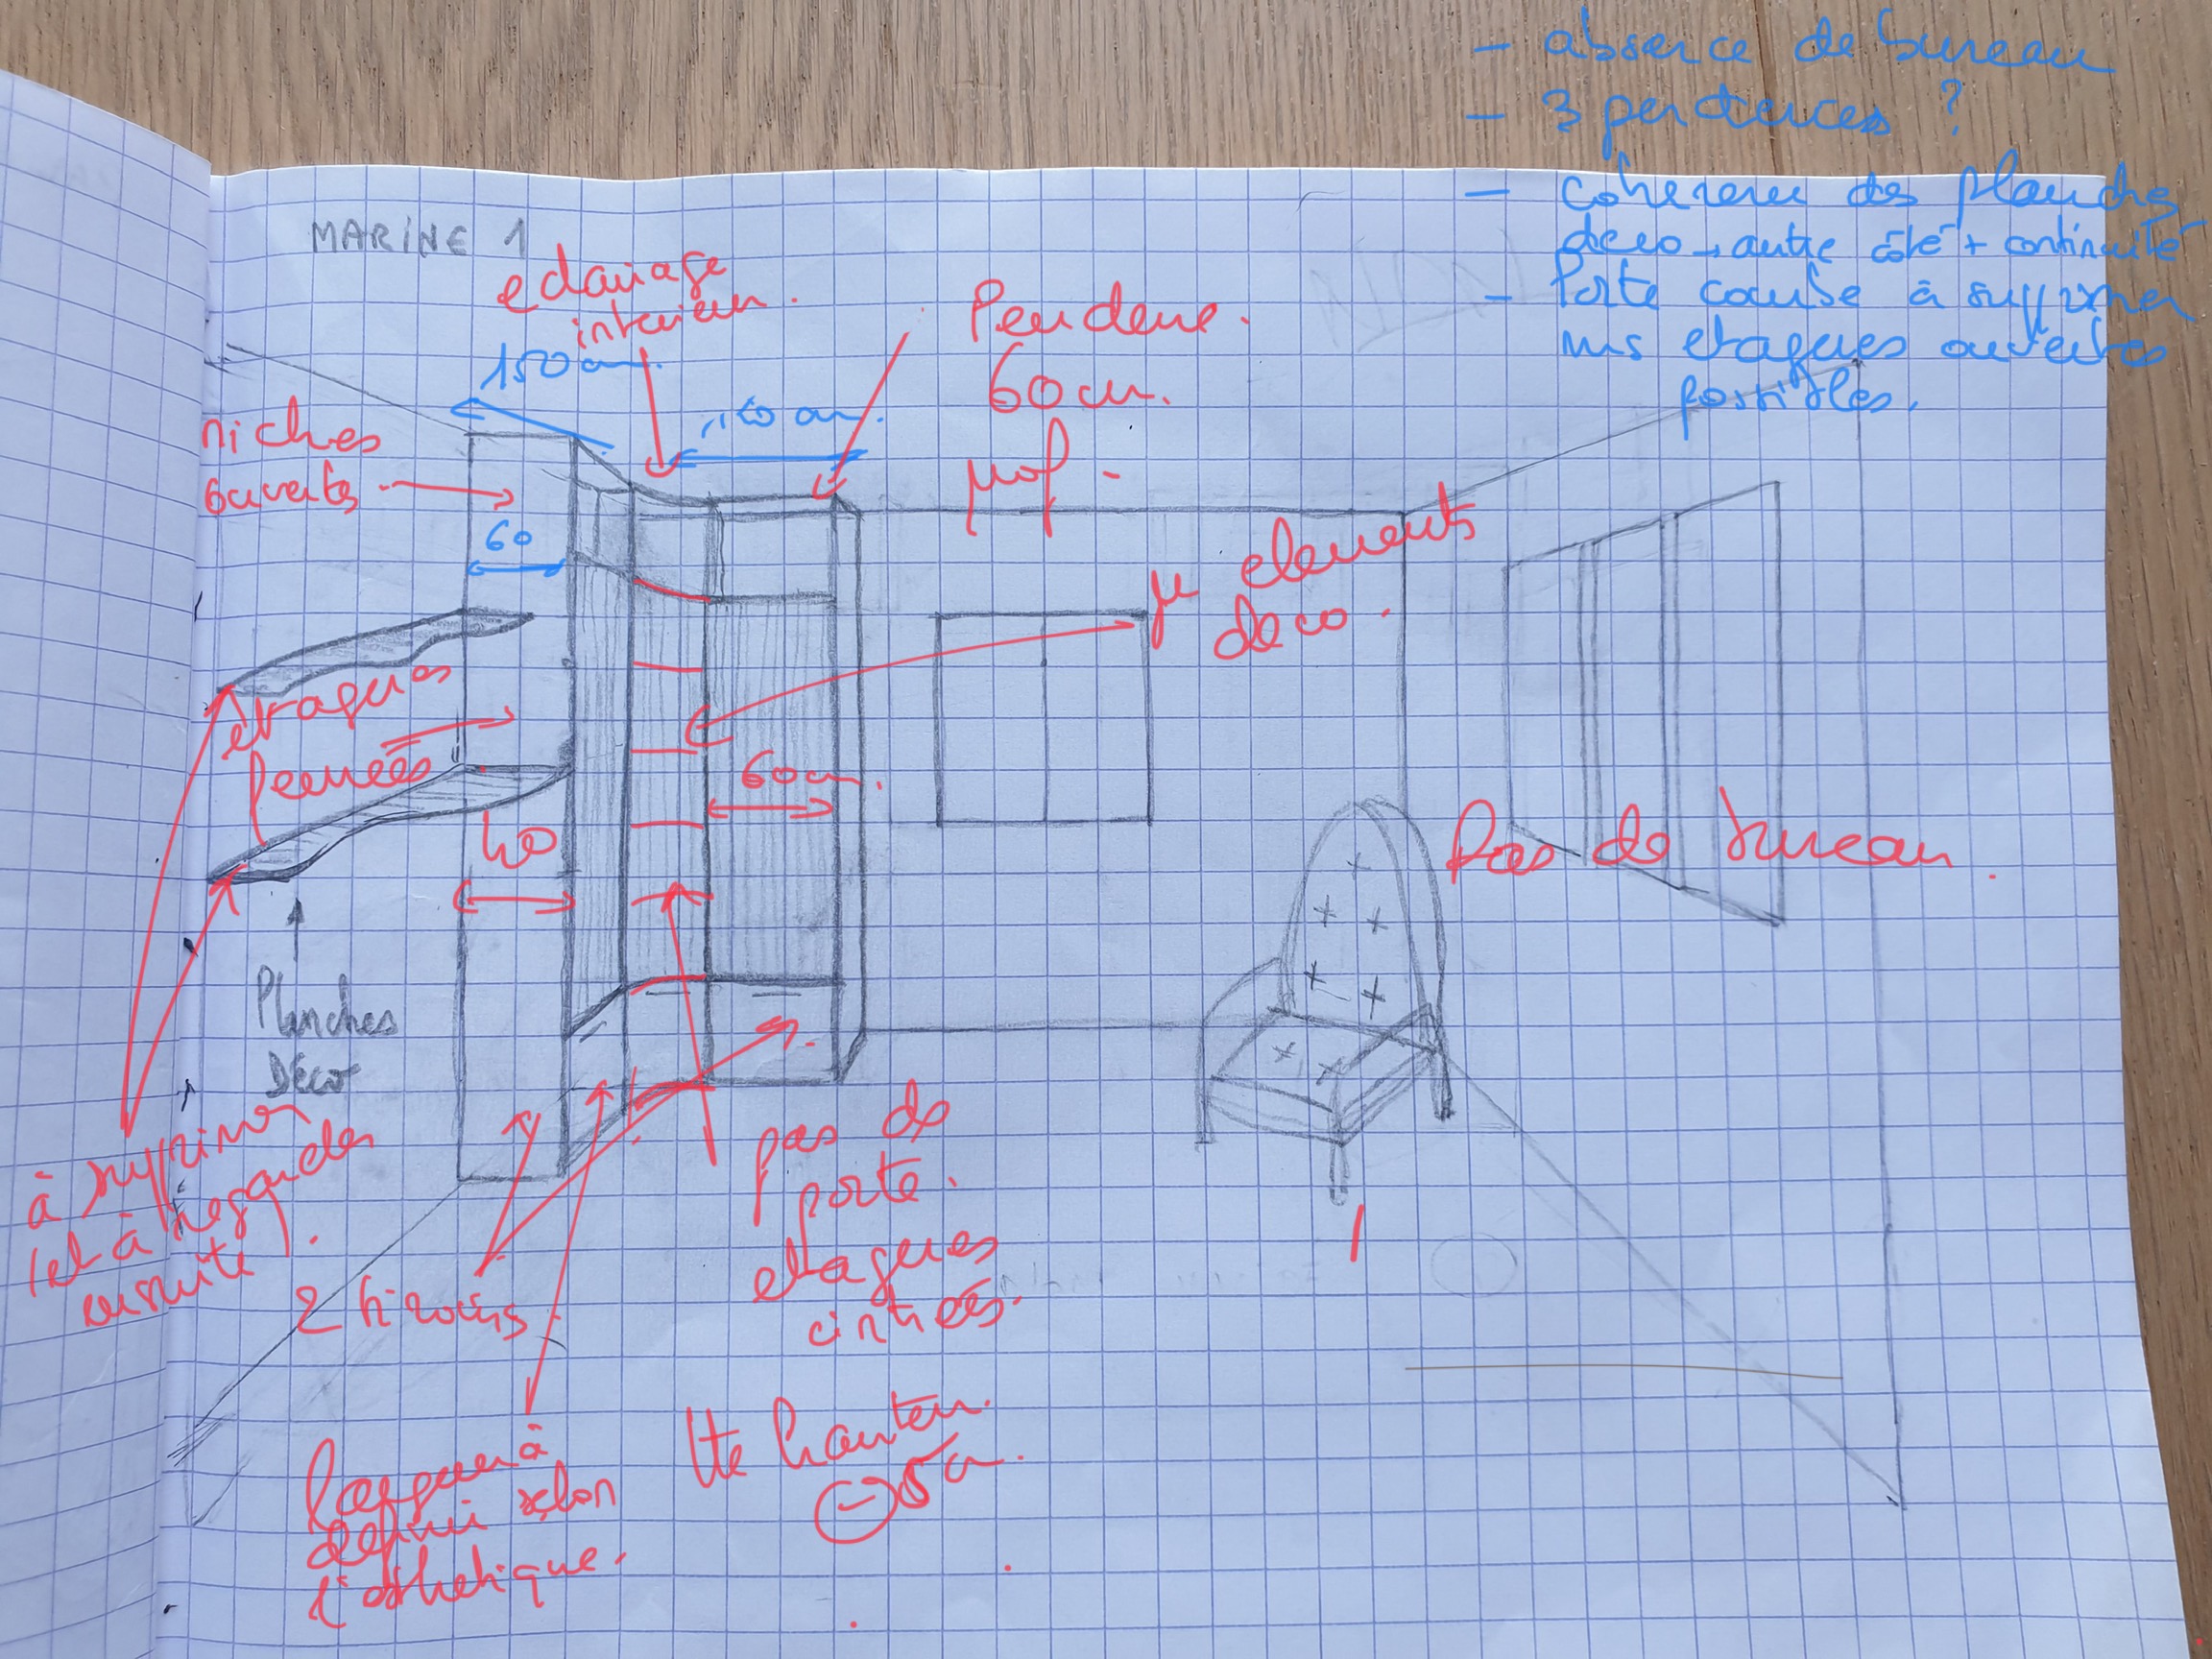 - absence de bureau
- 3 penderies ?
- coherence des planches
deco → autre côté + continuité
- Porte courbe à supprimer
mais etageres ouvertes
possibles.
MARINE 1
eclairage
interieur.
150 cm.
110 cm.
Penderie.
60 cm.
prof -
niches
ouvertes
60
elements
deco.
etageres
fermées
60 cm.
40
Pas de bureau.
Planches
Déco
à supprimer
(et à regarder
ensuite).
2 tiroirs.
pas de
porte.
etageres
cintrées.
largeur à
definir selon
l'esthetique.
tte hauteur
- 5 cm.